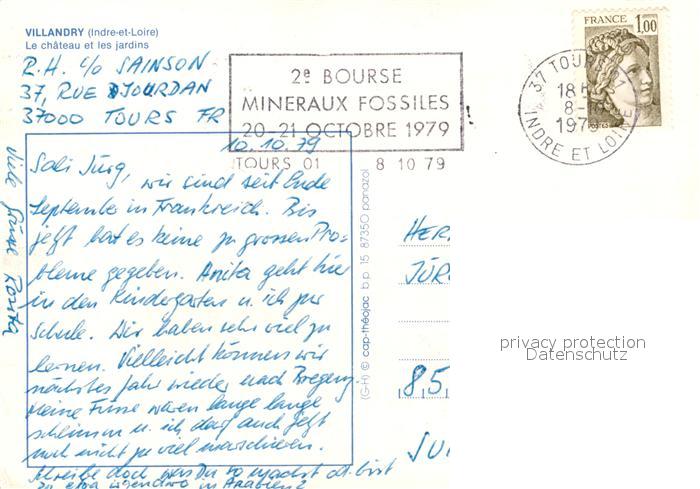 VILLANDRY (Indre-et-Loire)
Le château et les jardins
R.H. c/o SAINSON
37, RUE JOURDAN
37000 TOURS FR
2e BOURSE
MINERAUX FOSSILES
20-21 OCTOBRE 1979
TOURS 01 8 10 79
FRANCE
1,00
37 TOURS
18H
8-
197
INDRE ET LOIRE
POSTES
10.10.79
Sali Jürg, wir sind seit Ende
September in Frankreich. Bis
jetzt hat es keine zu grossen Pro-
bleme gegeben. Anita geht hier
in den Kindergarten u. ich zur
Schule. Wir haben sehr viel zu
lernen. Vielleicht können wir
nächstes Jahr wieder nach Bregenz.
Meine Füsse waren lange lange
schlimm u. ich darf auch jetzt
noch nicht zu viel marschieren.
Schreibe doch was Du so machst od. bist
Du etwa irgendwo in Arabien?
Viele Grüsse
(G-H) © cap-théojac b.p. 15 87350 panazol
HER
JÜR
8,5
privacy protection
Datenschutz